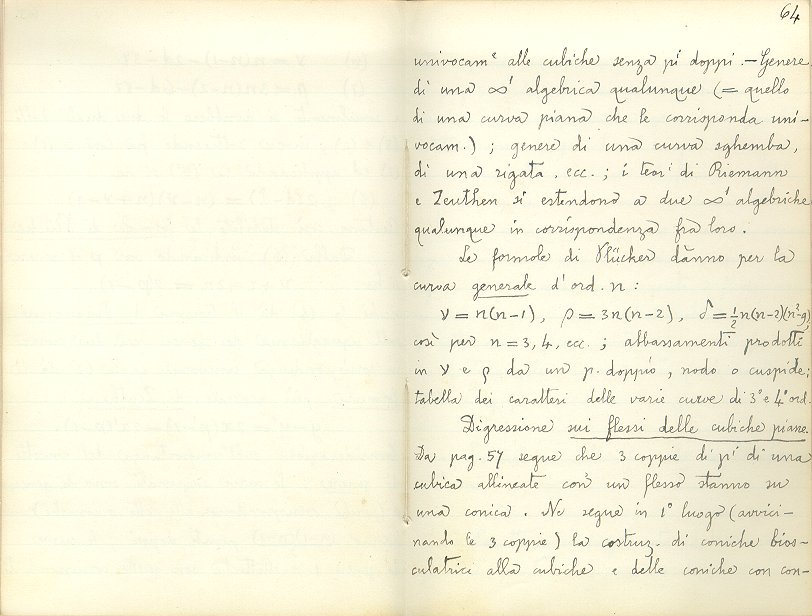 64
univocam^e alle cubiche senza p^i doppi. — Genere
di una ∞¹ algebrica qualunque (= quello
di una curva piana che le corrisponda uni-
vocam.); genere di una curva sghemba,
di una rigata, ecc.; i teor^i di Riemann
e Zeuthen si estendono a due ∞¹ algebriche
qualunque in corrispondenza fra loro.
Le formole di Plücker dànno per la
curva generale d'ord. n:
ν = n(n-1), ρ = 3n(n-2), δ' = ½n(n-2)(n²-9)
così per n = 3, 4, ecc.; abbassamenti prodotti
in ν e ρ da un p. doppio, nodo o cuspide;
tabella dei caratteri delle varie curve di 3° e 4° ord.
Digressione sui flessi delle cubiche piane.
Da pag. 57 segue che 3 coppie di p^i di una
cubica allineate con un flesso stanno su
una conica. Ne segue in 1° luogo (avvici-
nando le 3 coppie) la costruz. di coniche bios-
culatrici alla cubiche e delle coniche con con-